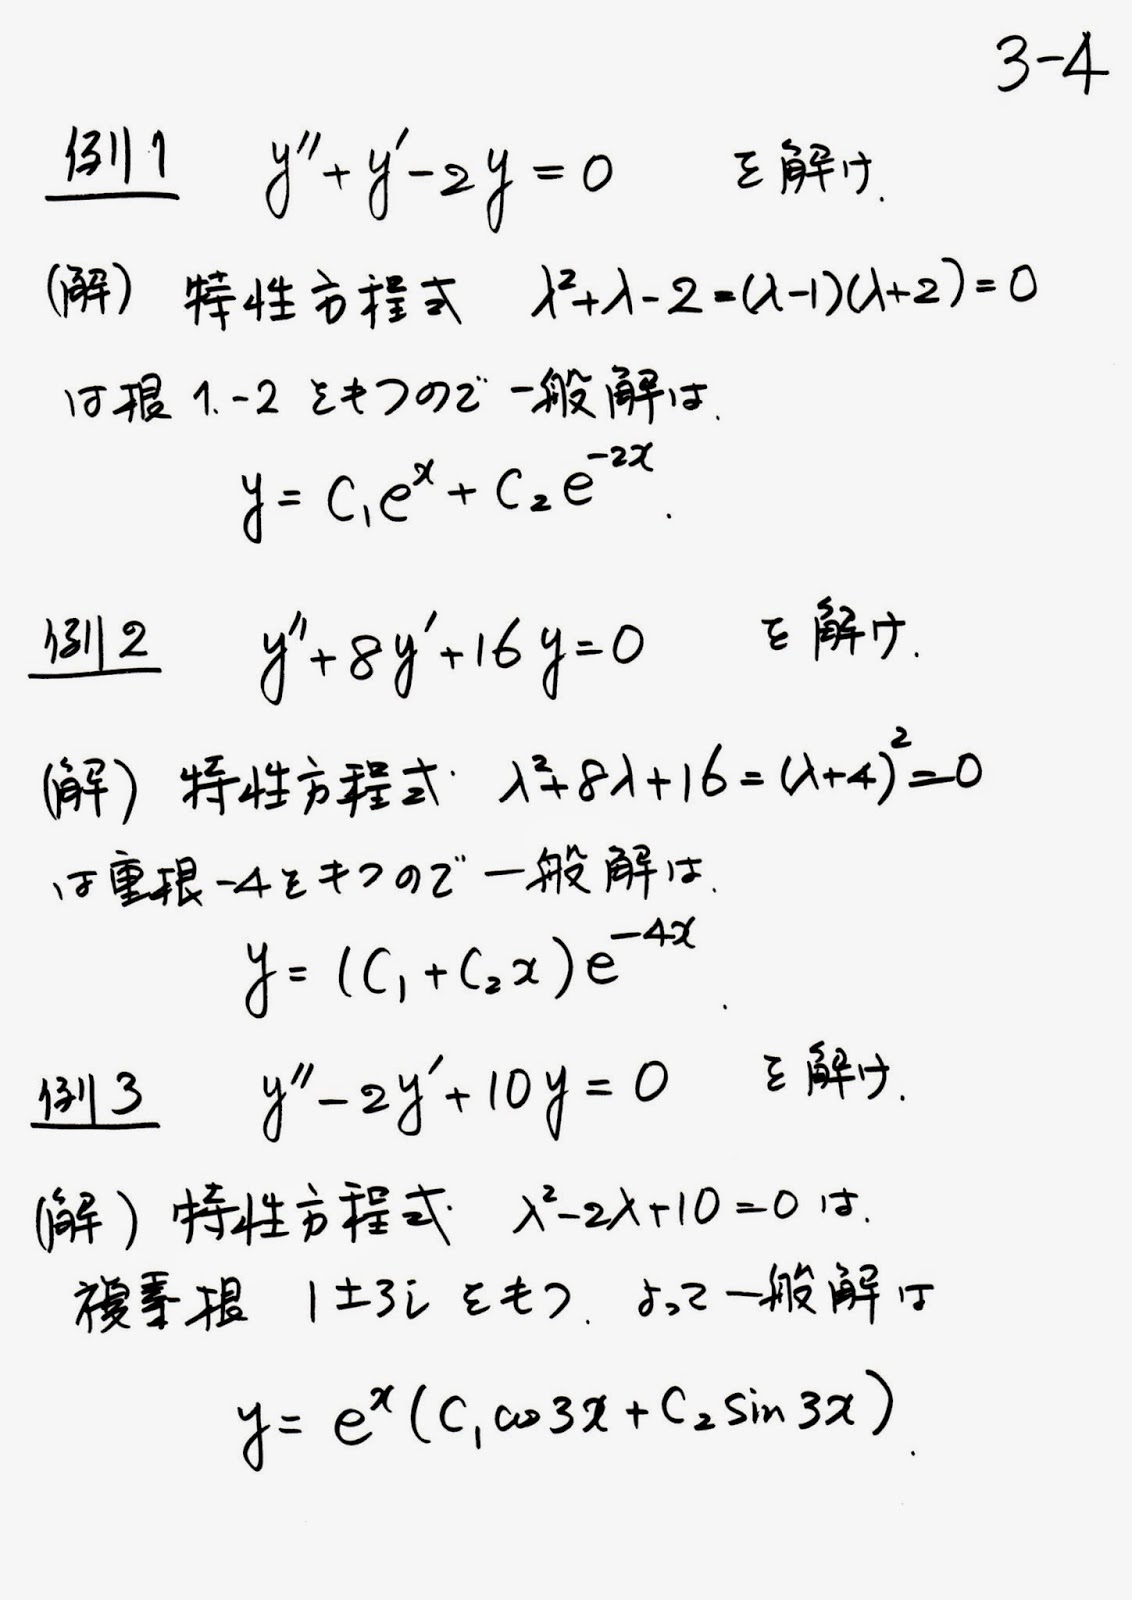 3-4
例1 y''+y'-2y=0 を解け.
(解) 特性方程式 λ²+λ-2=(λ-1)(λ+2)=0
は根 1.-2 をもつので 一般解は.
y=C₁eˣ+C₂e⁻²ˣ.
例2 y''+8y'+16y=0 を解け.
(解) 特性方程式 λ²+8λ+16=(λ+4)²=0
は重根-4をもつので 一般解は.
y=(C₁+C₂x)e⁻⁴ˣ.
例3 y''-2y'+10y=0 を解け.
(解) 特性方程式 λ²-2λ+10=0 は.
複素根 1±3i をもつ. よって一般解は
y=eˣ(C₁cos3x+C₂sin3x).